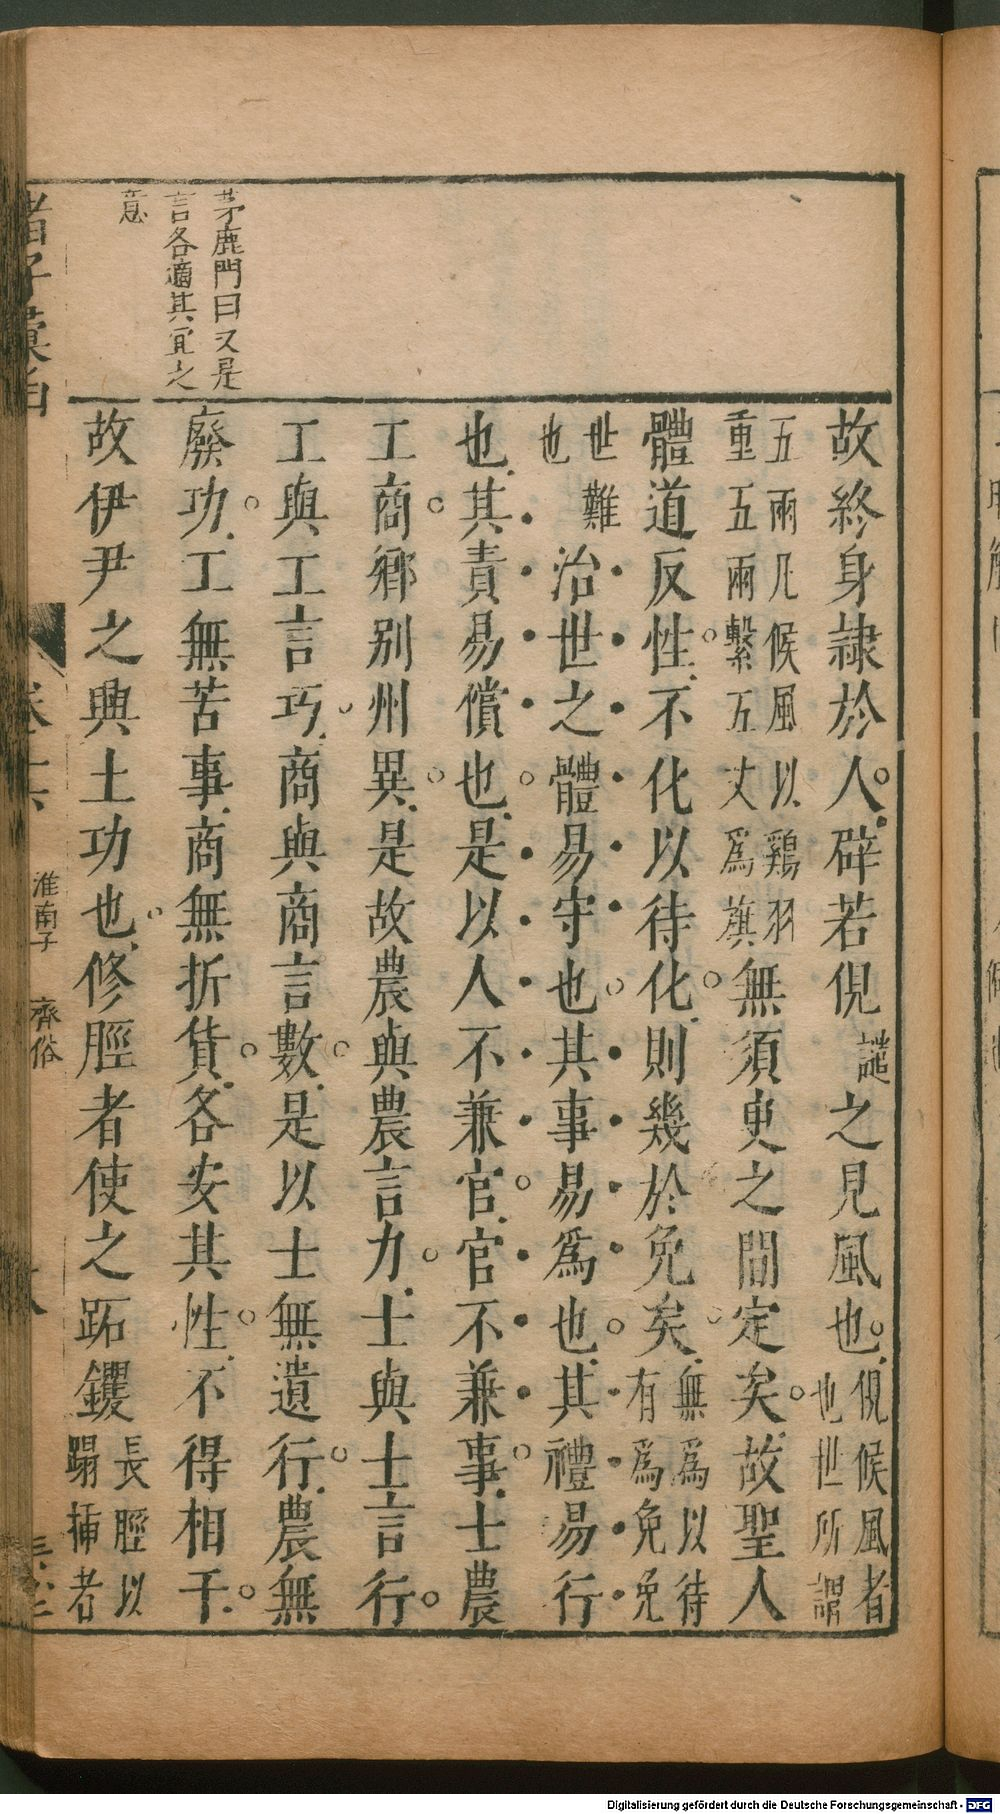 茅鹿門曰又是
言各適其宜之
意
故終身隸於人辟若俔譃之見風也俔候風者也世所謂
五兩凡候風以鷄羽重五兩繫五丈爲旗無須臾之間定矣故聖人
體道反性不化以待化則幾於免矣無爲以待有爲免免
世難也治世之體易守也其事易爲也其禮易行
也其責易償也是以人不兼官官不兼事士農
工商鄉别州異是故農與農言力士與士言行
工與工言巧商與商言數是以士無遺行農無
廢功工無苦事商無折貨各安其性不得相干
故伊尹之興土功也修脛者使之跖钁長脛以蹋揷者
諸子彙函
卷十六 淮南子 齊俗
Digitalisierung gefördert durch die Deutsche Forschungsgemeinschaft - DFG